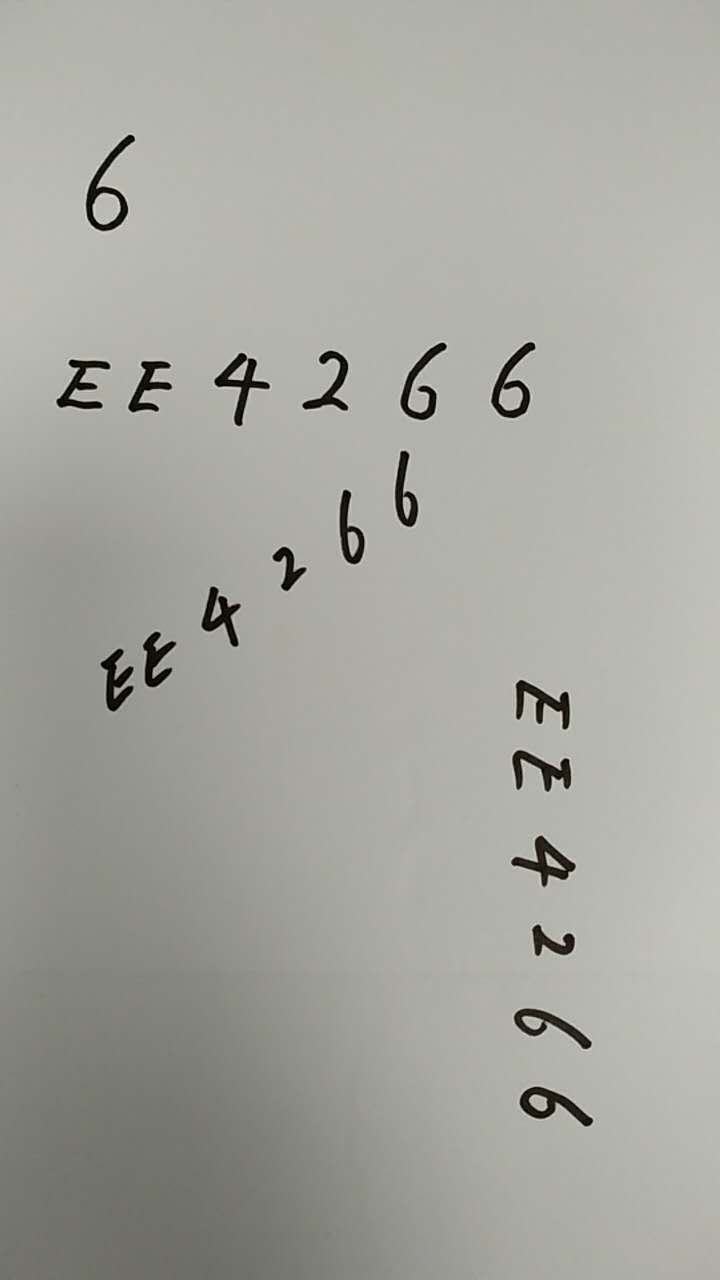 6
EE4266
EE4266
EE4266